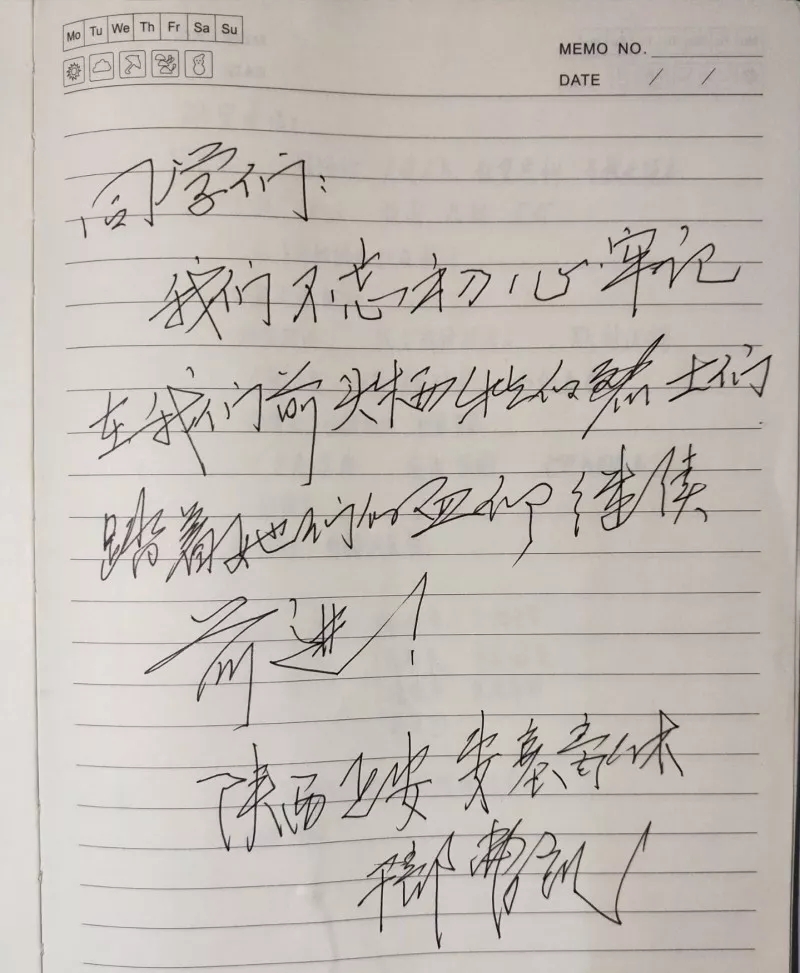 Mo Tu We Th Fr Sa Su
MEMO NO.
DATE / /
同学们：
我们不忘初心牢记
在我们前头牺牲的烈士们
踏着他们的血印继续
前进！
陕西 安